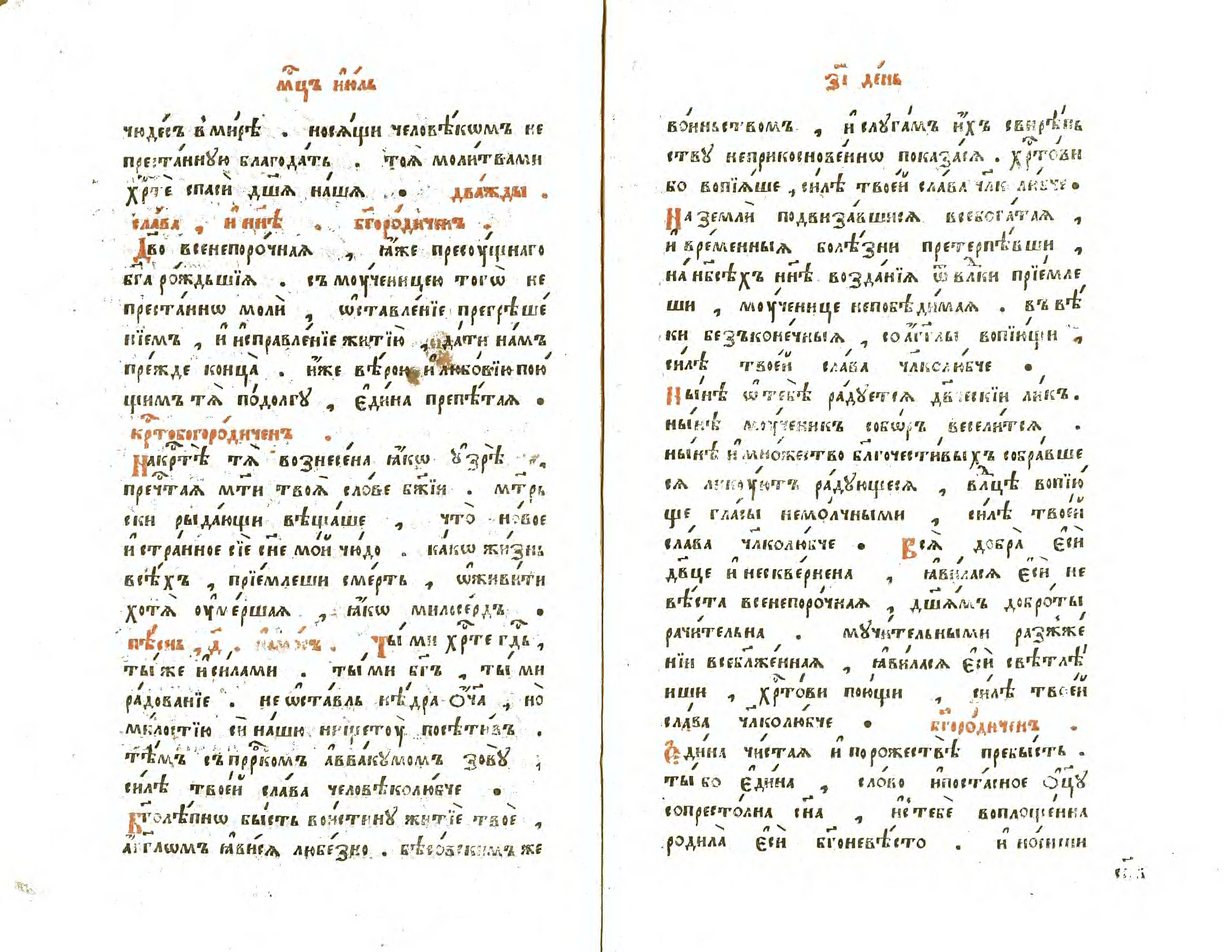 мц҃ъ ию́ль
чюде́съ в ми́рѣ . нося́щи человѣ́кѡмъ не
преста́нную благода́ть . тоя̀ моли́твами
хр҃тѐ спасѝ дш҃я на́шя . два́жды .
сла́ва , и҆ нн҃ѣ . бг҃оро́диченъ .
Дв҃о всенепоро́чная , ꙗ҆́же пресоу́щнаго
бг҃а ро́ждьшїя . съ моу́ченицею тогѡ̀ не
преста́ннѡ молѝ , ѡ҆ставле́нїе прегрѣше́
нїемъ , и҆ исправле́нїе житїю̀ , да́ти на́мъ
пре́жде конца̀ . и҆́же вѣ́рою и҆ любо́вїю пою́
щимъ тѧ̀ по до́лгу , є҆ди́на препѣ́тая .
кр҃тобогоро́диченъ .
На кр҃тѣ̀ тѧ̀ вознесе́на ꙗ҆́кѡ у҆зрѣ̀ ,
пречⷭ҇тая мт҃и твоѧ̀ сло́ве бж҃їи . мт҃рь
ски рыда́ющи вѣща́ше , что̀ но́вое
и҆ стра́нное сїѐ сн҃е мо́й чю́до . ка́кѡ жи́знь
всѣ́хъ , прїе́млеши сме́рть , ѡ҆живи́ти
хотя̀ оу҆ме́ршая , ꙗ҆́кѡ милосе́рдъ .
пѣ́снь , д҃ . Ты́ ми хр҃тѐ гд҃ь ,
ты́ же и҆ си́лами . ты́ ми бг҃ъ , ты́ ми
ра́дованїе . не ѡ҆ста́вль нѣ́дра ѻ҆́ч҃а , но
мл҃остїю сѝ на́шю нищетоу̀ посѣти́въ .
тѣ́мъ съ прⷪ҇ркомъ а҆ввакумомъ зову́ ;
си́лѣ твое́й сла́ва человѣколю́бче .
Бг҃олѣ́пнѡ бы́сть вои́стину житїѐ твоѐ ,
а҆́гг҃лѡмъ ꙗ҆ви́ся любе́зно . бѣсо́вскимъ же
з҃і де́нь
во́иньствомъ , и҆ слуга́мъ и҆́хъ свирѣ́нь
ству неприкоснове́ннѡ показа́ся . хр҃то́ви
бо вопїя́ше , си́лѣ твое́й сла́ва чл҃колю́бче .
На землѝ подвиза́вшися всебога́тая ,
и҆ вре́менныя болѣ́зни претерпѣ́вши ,
на нб҃сѣ́хъ нн҃ѣ возда́нїя ѿ вл҃ки прїе́мле
ши , моу́ченице непобѣди́мая . въ вѣ́
ки безъконе́чныя , со а҆́гг҃лы вопїю́щи ,
си́лѣ твое́й сла́ва чл҃колю́бче .
Ны́нѣ ѡ҆ тебѣ̀ ра́дуется дв҃ческїи ли́къ .
ны́нѣ моу́ченикъ собѡ́ръ весели́тся .
ны́нѣ и҆ мно́жество бл҃гочести́выхъ собра́вше
ся лико́уютъ ра́дующеся , влⷣцѣ вопїю́
ще гла́сы немо́лчными , си́лѣ твое́й
сла́ва чл҃колю́бче . Всѧ̀ добра̀ є҆сѝ
дв҃це и҆ нескве́рнена , ꙗ҆ви́лася є҆сѝ не
вѣ́ста всенепоро́чная , дш҃я́мъ добро́ты
рачи́тельна . мучи́тельными разжже́
нїи всебл҃же́нная , ꙗ҆ви́лася є҆сѝ свѣтлѣ́
иши , хр҃то́ви пою́щи , си́лѣ твое́й
сла́ва чл҃колю́бче . бг҃оро́диченъ .
Є҆ди́на чи́стая и҆ по рожествѣ̀ пребы́сть .
ты́ бо є҆ди́на , сло́во и҆поста́сное ѻ҆ц҃у̀
сопресто́лна сн҃а , и҆с тебѐ воплоще́нна
родила̀ є҆сѝ бг҃оневѣ́сто . и҆ но́сиши